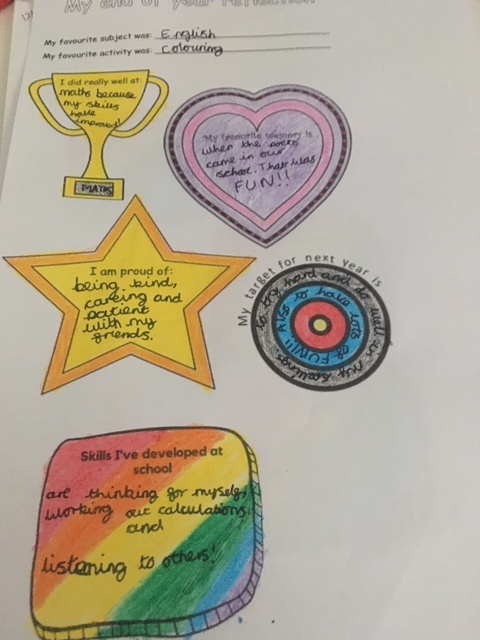 My end of year reflection
My favourite subject was: English
My favourite activity was: Colouring
I did really well at:
maths because
my skills
have
improved!
MATHS
My favourite memory is
when the
came in our
school. That was
FUN!!
I am proud of:
being kind,
careing and
patient
with my
friends.
My target for next year is
to try hard and do well in my
Also to have lots of FUN!!
Skills I've developed at
school
are thinking for myself,
working out calculations
and
listening to others!